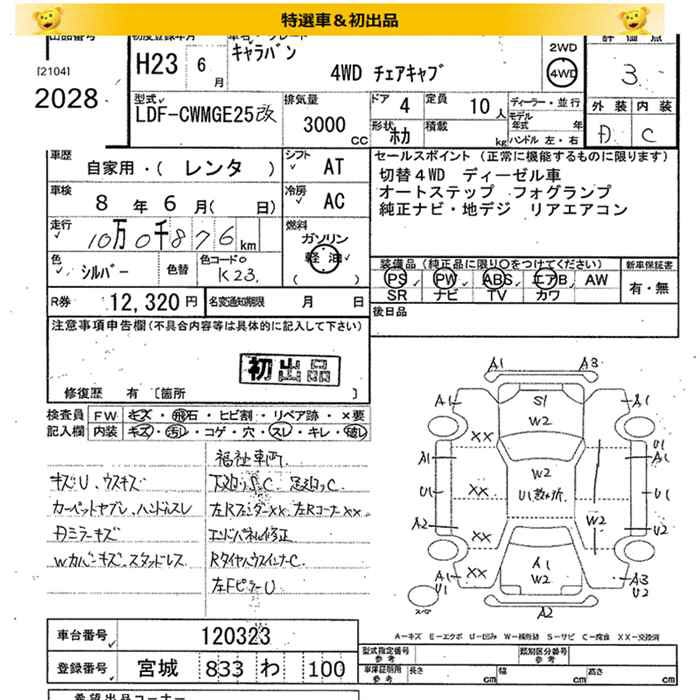 特選車＆初出品
出品番号
[2104]
2028
初度登録年月
H23 6月
キャラバン
4WD チェアキャブ
2WD
4WD
評価点
3
外装 内装
A C
型式
LDF-CWMGE25改
排気量
3000 CC
ドア 4
定員 10人
形状 ホカ
積載 kg
ディーラー・並行
モデル年式 年
ハンドル 左・右
車歴 自家用・(レンタ)
シフト AT
車検 8年6月(日)
冷房 AC
走行 10万0千876km
燃料 ガソリン
軽油
( )
色 シルバー
色替
色コードNo K23
R券 12,320円
名変通知期限 月 日
セールスポイント（正常に機能するものに限ります）
切替4WD ディーゼル車
オートステップ フォグランプ
純正ナビ・地デジ リアエアコン
装備品（純正品に限り○をつけてください）
PS PW ABS エアB AW
SR ナビ TV カワ
新車保証書
有・無
後日品
注意事項申告欄(不具合内容等は具体的に記入して下さい)
初出品
修復歴 有〔箇所 〕
検査員 FW キズ・飛石・ヒビ割・リペア跡・×要
記入欄 内装 キズ・汚レ・コゲ・穴・スレ・キレ・破レ
福祉車両
キズU、ウスキズ
下廻りS.C 足廻りC
カーペットヤブレ、ハンドルスレ
左Rフェンダーxx、左Rコーナーxx
Aミラーキズ
エンドパネル修正
Wカバーキズ、スタッドレス
RタイヤハウスインナーC
左FピラーU
A1 A3
A1 S1 A1
W2
XX U1
A1 W2 A1
U1 XX U1数ヶ所 U1
A2 XX W2 U2
A1 XX A1 A3
U1 W2 U2
スペア A2
A−キズ E−エクボ U−凹み W−補修跡 S−サビ C−腐食 XX−交換済
車台番号 120323
登録番号 宮城 833 わ 100
型式指定番号 参考
類別区分番号 参考
車庫証明用 参考 長さ cm 幅 cm 高さ cm
希望出品コーナー